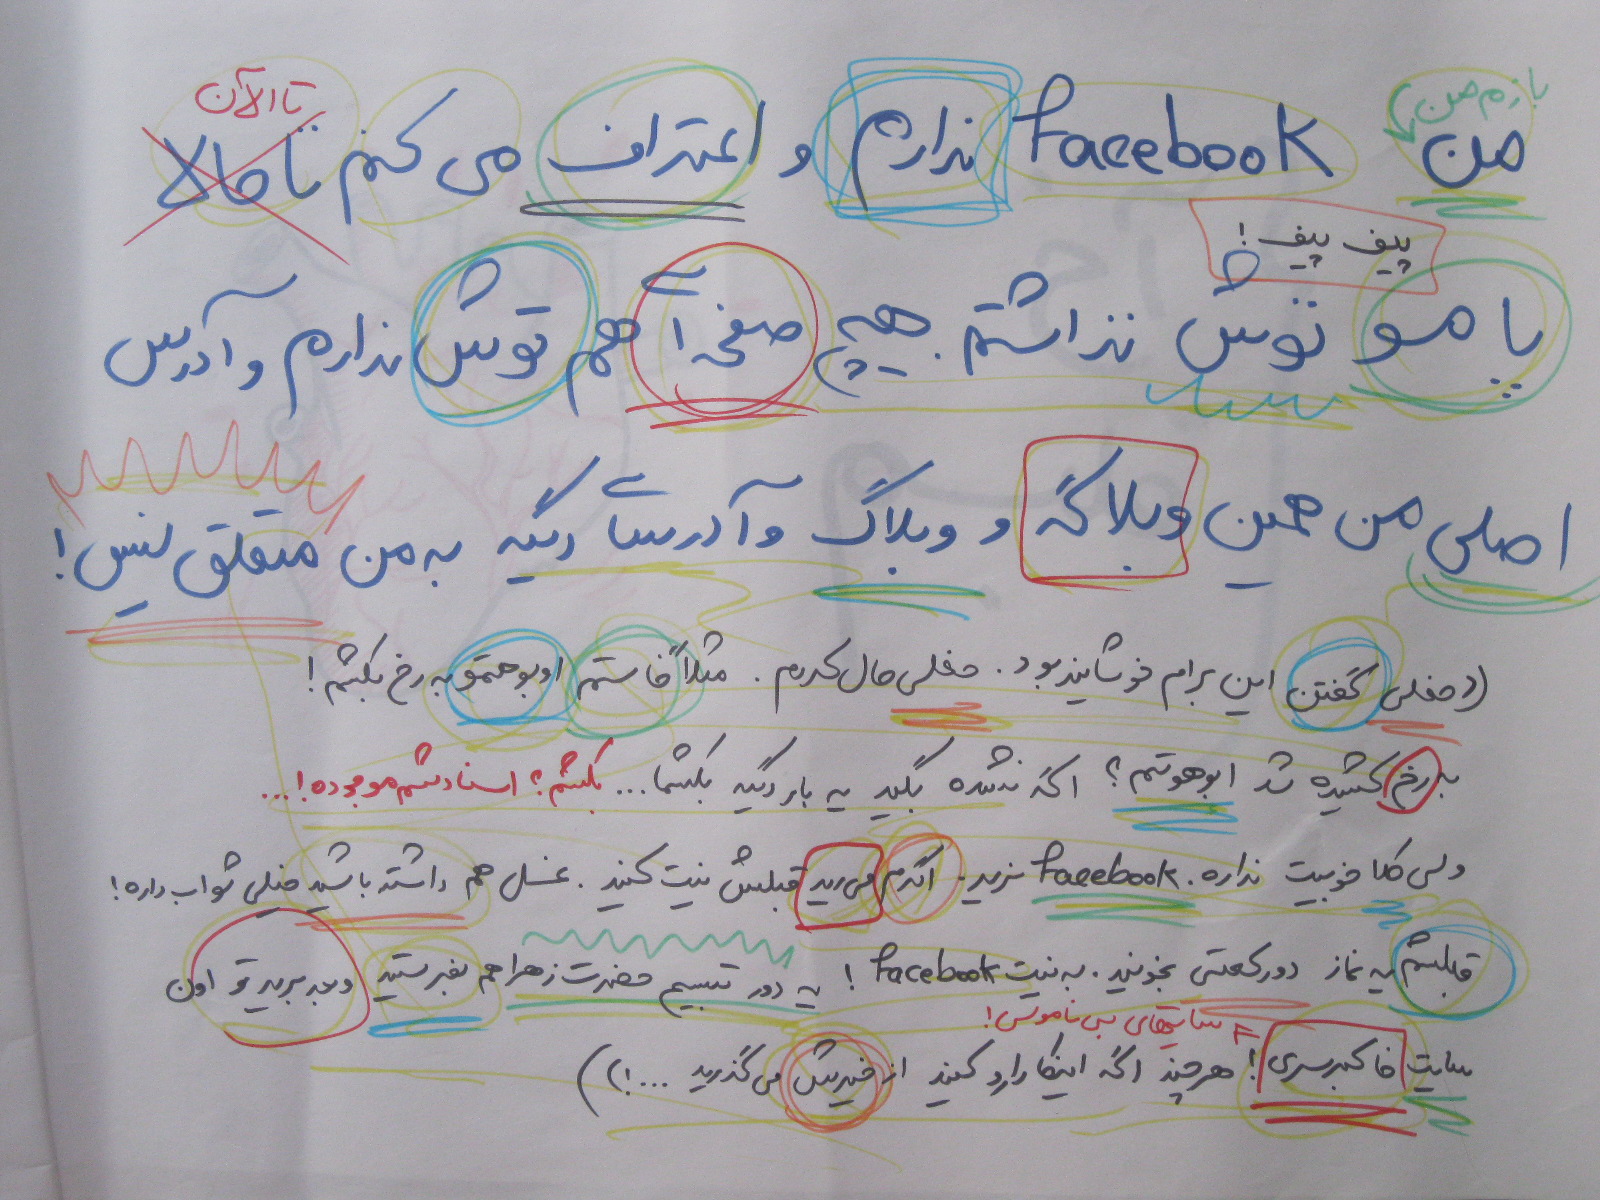 بازم من
تا الآن
من Facebook ندارم و اعتراف می کنم تا حالا
پیف پیف!
پا مو توش نذاشتم. هیچ صفحه آی هم توش ندارم و آدرس
اصلی من همین وبلاگه و وبلاگ و آدرسای دیگه به من متعلق نیس!
(خعلی گفتن این برام خوشایند بود. خعلی حال کردم. مثلاً خاستم ابوهتمو به رخ بکشم!
به رخ کشیده شد ابوهوتم؟ اگه نشده بگید یه بار دیگه بکشما... بکشم؟ اسنادشم موجوده!...
ولی کلا خوبیت نداره. Facebook نرید. اگرم می رید قبلش نیت کنید. غسل هم داشته باشید خیلی ثواب داره!
قبلشم یه نماز دو رکعتی بخونید. به نیت Facebook! یه دور تسبیح حضرت زهرا هم بفرستید و بعد برید تو اون
سایتهای بی ناموسی!
سایت خاکبرسری! هرچند اگه اینکارارو کنید از خیرش می گذرید ...!)